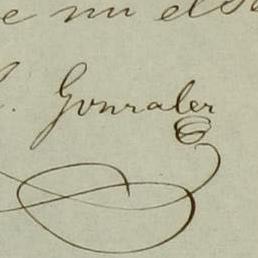 e nu els
. Gonzalez